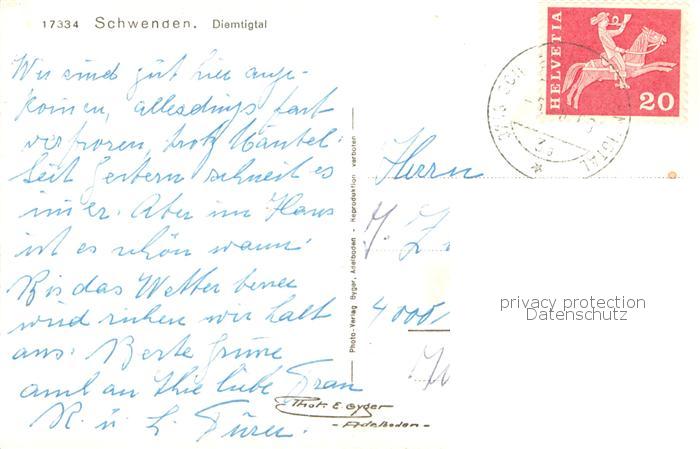 17334 Schwenden. Diemtigtal
Wir sind gut hier ange-
kommen, allerdings fast
verfroren, trotz Mäntel.
Seit gestern schneit es
immer. Aber im Haus
ist es schön warm.
Bis das Wetter besser
wird ruhen wir halt
aus. Beste Grüsse
auch an Ihre liebe Frau
R. u. H.
Photo-Verlag Gyger, Adelboden - Reproduktion verboten
Phot. E. Gyger
- Adelboden -
HELVETIA
20
Herrn
J. Z
4000
privacy protection
Datenschutz